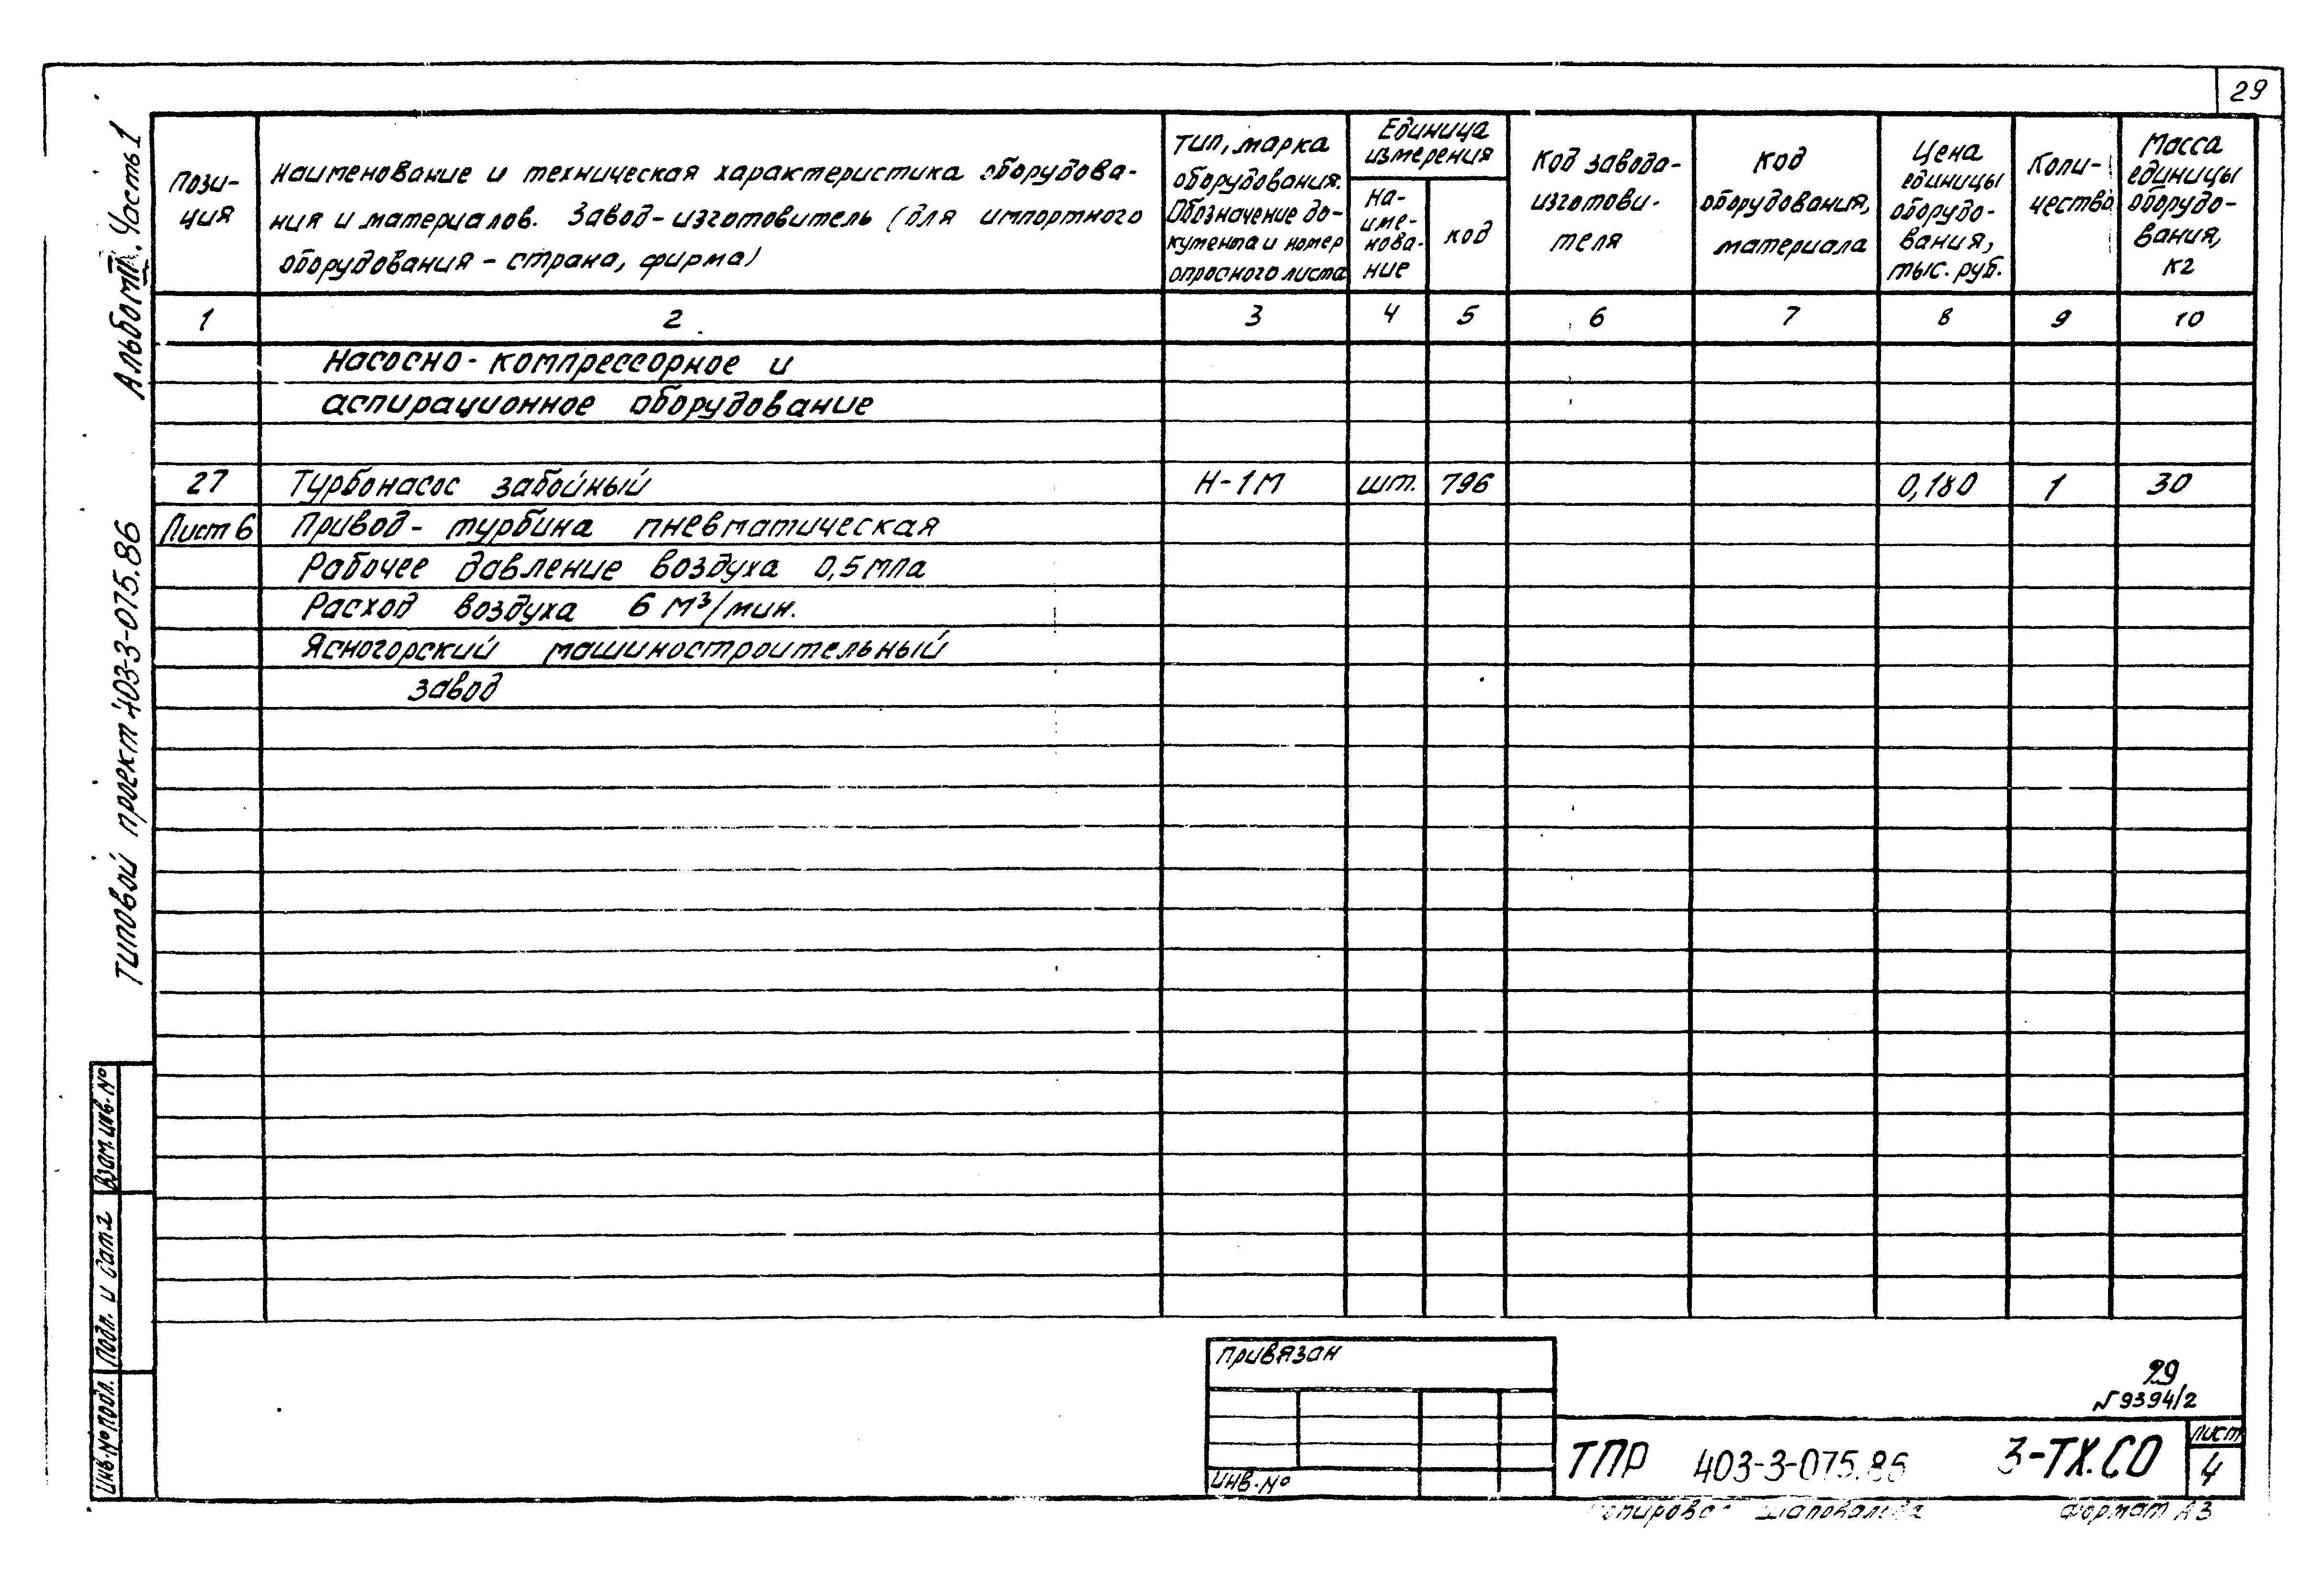 29
Альбом III. Часть 1
Типовой проект 403-3-075.86
Пози-
ция
Наименование и техническая характеристика оборудова-
ния и материалов. Завод-изготовитель (для импортного
оборудования - страна, фирма)
Тип, марка
оборудования.
Обозначение до-
кумента и номер
опросного листа
Единица
измерения
На-
име-
нова-
ние
код
Код завода-
изготови-
теля
Код
оборудования,
материала
Цена
единицы
оборудо-
вания,
тыс. руб.
Коли-
чество
Масса
единицы
оборудо-
вания,
кг
1 2 3 4 5 6 7 8 9 10
Насосно-компрессорное и
аспирационное оборудование
27 Турбонасос забойный Н-1М шт. 796 0,180 1 30
Лист 6 Привод- турбина пневматическая
Рабочее давление воздуха 0,5 мпа
Расход воздуха 6 м³/мин.
Ясногорский машиностроительный
завод
Взам. инв. №
Подп. и дата
Инв. № подл.
Привязан
Инв. №
29
9394/2
ТПР 403-3-075.86 3-ТХ.СО
Лист
4
Шаповалова Формат А3